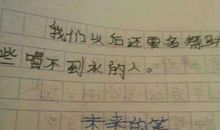 我们以后还要多帮助
些喝不到水的人。
未来的笔